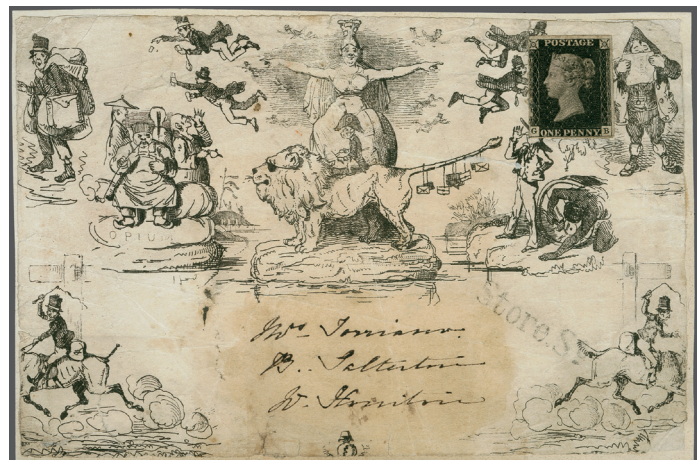 POSTAGE
G ONE PENNY B
OPIUM
Store.S
Mrs Torriano.
B. Salterton
Honiton